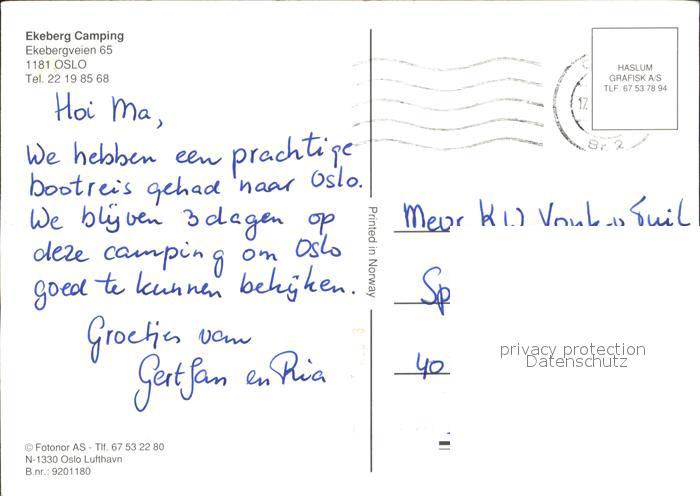 Ekeberg Camping
Ekebergveien 65
1181 OSLO
Tel. 22 19 85 68
Hoi Ma,
We hebben een prachtige
bootreis gehad naar Oslo.
We blijven 3 dagen op
deze camping om Oslo
goed te kunnen bekijken.
Groetjes van
GertJan en Ria
© Fotonor AS - Tlf. 67 53 22 80
N-1330 Oslo Lufthavn
B.nr.: 9201180
Printed in Norway
HASLUM
GRAFISK A/S
TLF. 67 53 78 94
17.
Br 2
Mevr
Sp
40
privacy protection
Datenschutz